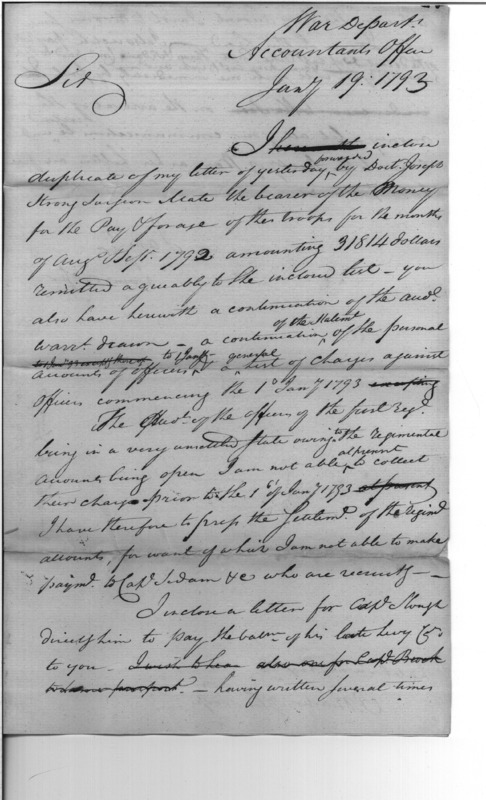 War Departt.
Accountants Office
Jany 19: 1793
Sir
I herewith inclose
forwarded
duplicate of my letter of yesterday, by Doct. Joseph
Strong Surgeon Mate the bearer of the Money
for the Pay & forage of the troops for the months
of Augt. & Sept. 1792 amounting 31814 dollars
remitted agreeably to the inclosed list – you
also have herewith a continuation of the
of the Statemt
warrt. drawn – a continuation of the personal
to Jany general
accounts of officers a list of charges against
Officers commencing the 1st Jany 1793 excepting
The of the officers of the first Regt.
being in a very unsettled State owing to the regimental
at present
accounts being open I am not able to collect
their charges prior to the 1st of Jany 1793 at present
I have therefore to press the Settlemt. of the Regiml
accounts, for want of which I am not able to make
paymt. to Capt. &c who are recruitg —
I inclose a letter for Capt. Slough
directg him to pay the balce. of his late levy Co
to you – I wish to hear also one for Capt. Brock
– having written several times